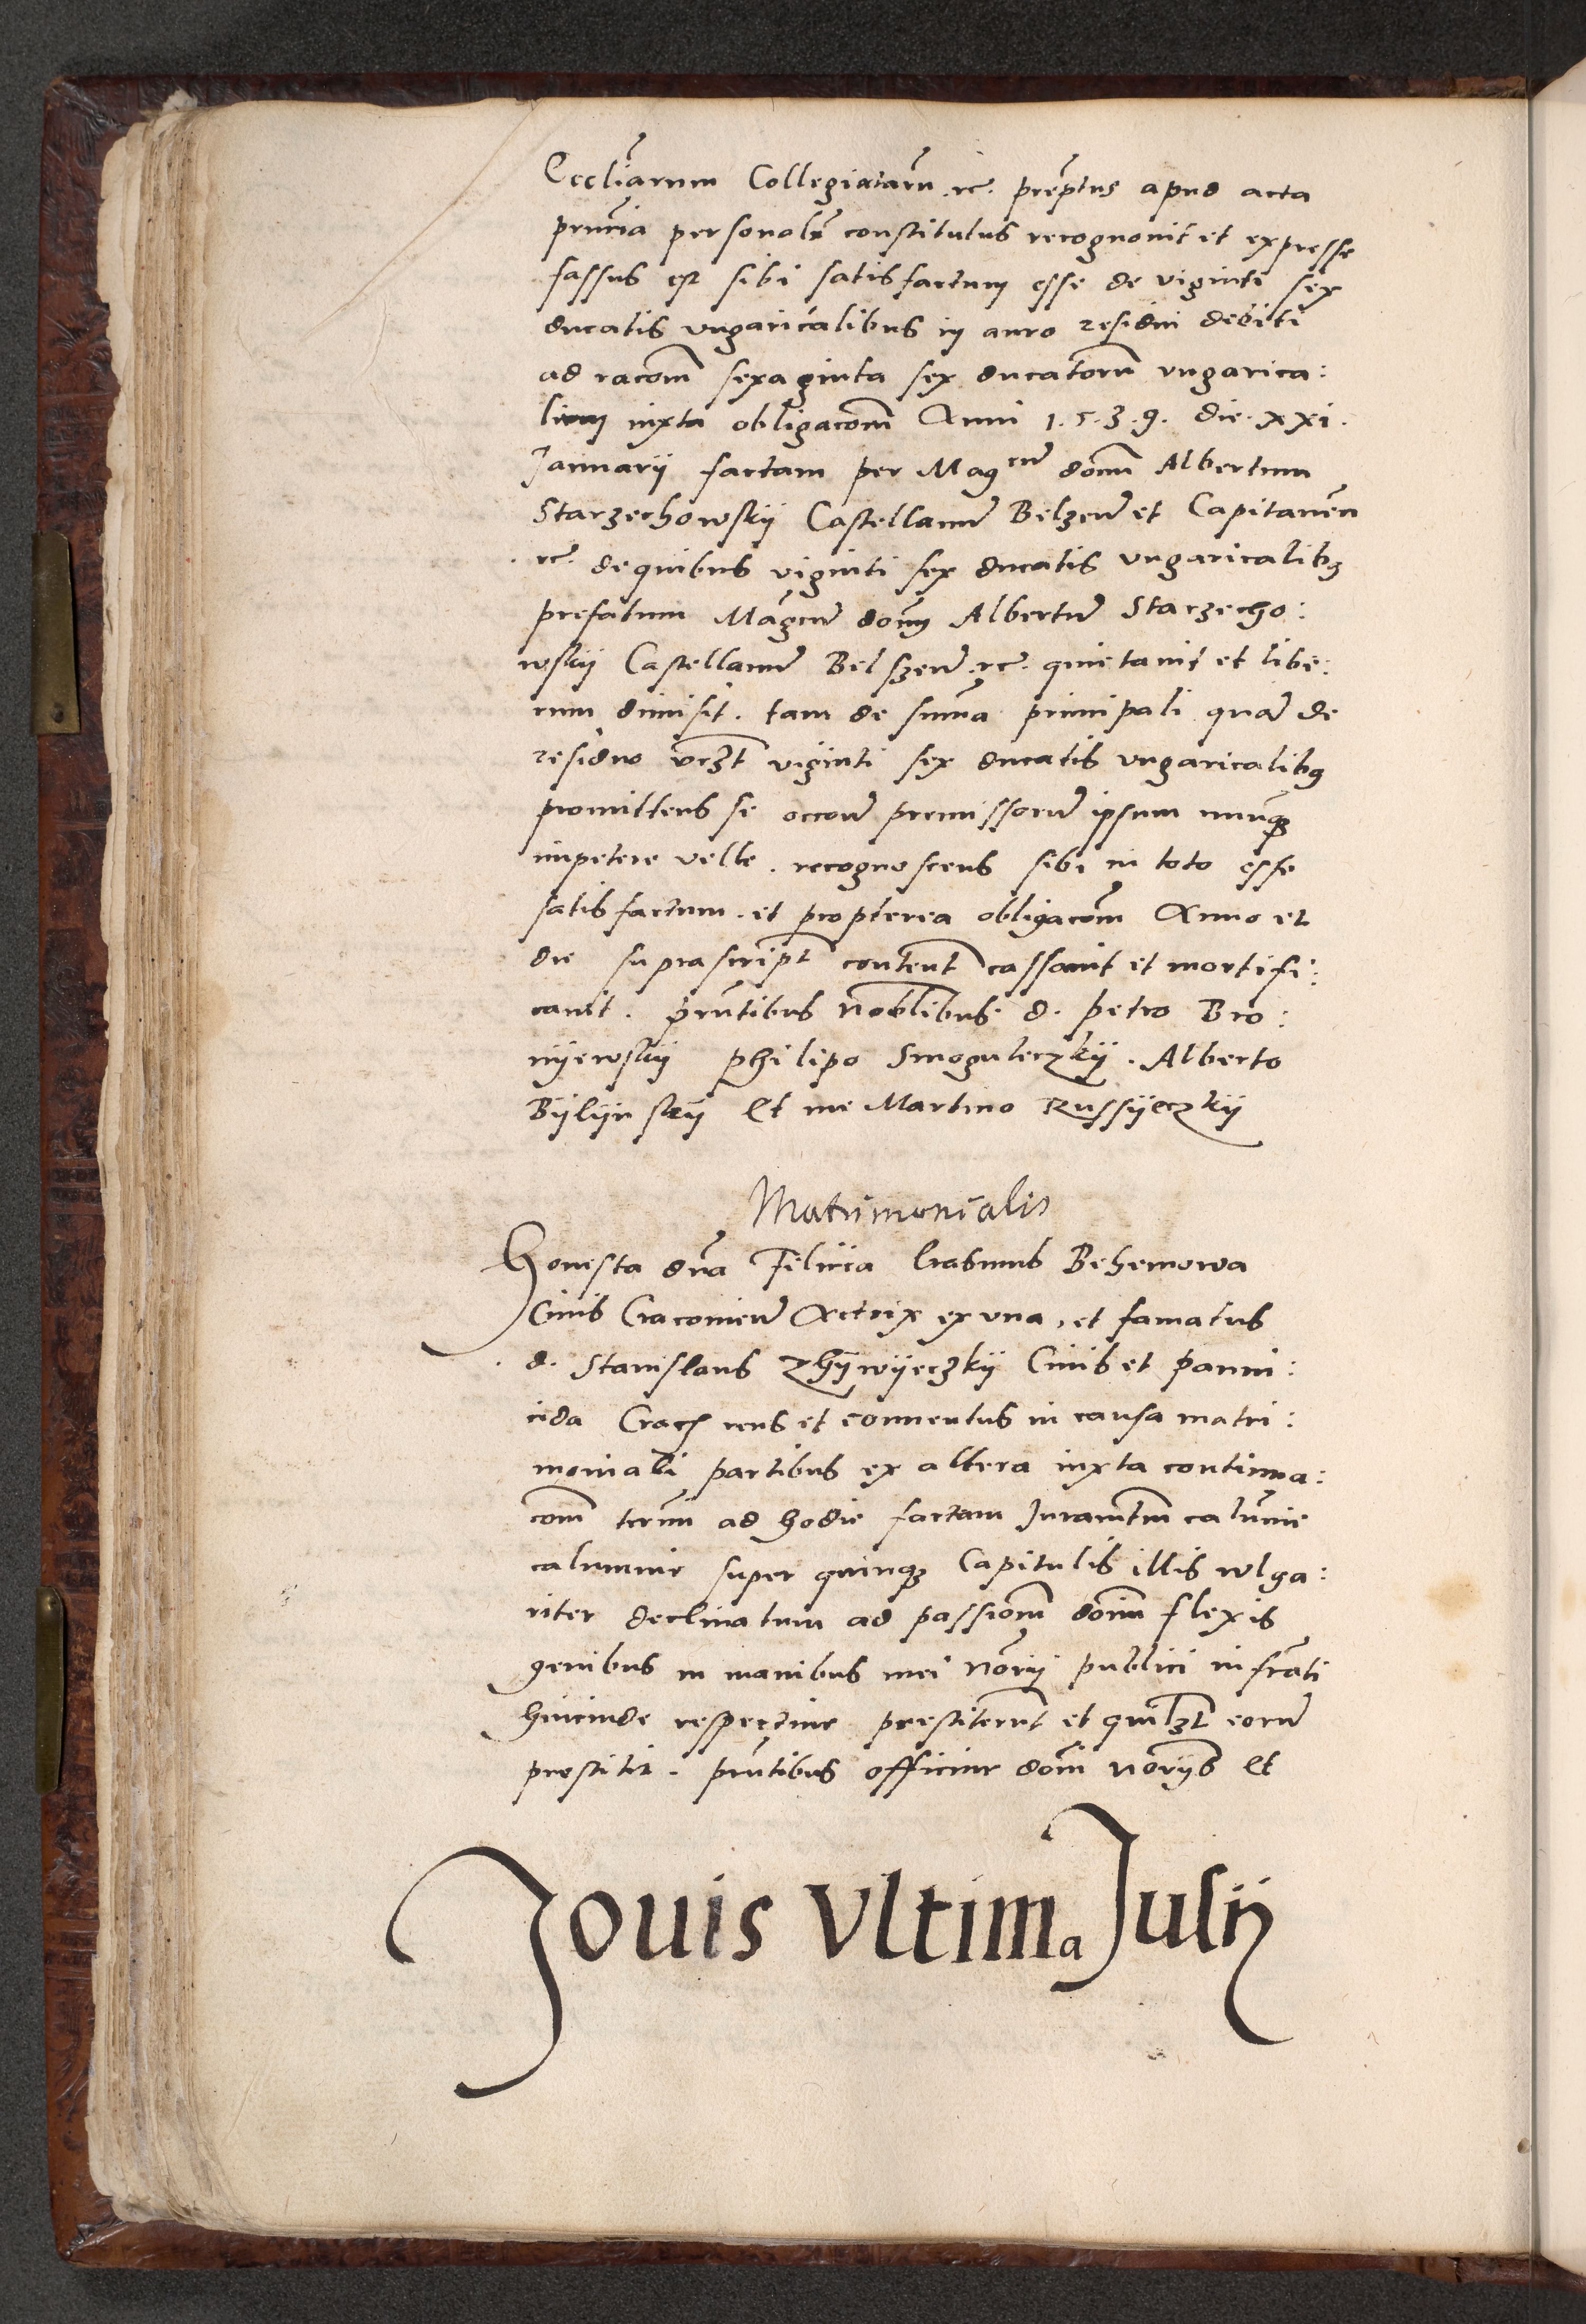 Eccliarum Collegiataru rc. preptus apud acta
prncia personalr constitutus recognouit et expresse
fassus est sibi satisfactum esse de viginti sex
ducatis vngaricalibus in auro residui debiti
ad racom sexaginta sex ducatoru vngarica:
lium iuxta obligacom Anni 1.5.3.9. die. xxi.
Januarij factam per Magcu domu Albertum
Starzechowskij Castellanu Belzen et Capitaneu
rc. de quibus viginti sex ducatis vngaricalibq
prefatum Magcu domu Albertu Starzecho:
wskij Castellanu Belszen rc. quietauit et libe:
rum dimisit. tam de suma principali qua de
residuo vczt viginti sex ducatis vngaricalibq
promittens se occoe premissoru ipsum nunq
impetere velle. recognoscens sibi in toto esse
satisfactum. et propterea obligacom Anno et
die suprascript content cassauit et mortifi:
cauit. pntibus Noblibus d. petro Bro:
nijewskij philipo Smoguleczkij. Alberto
Bijlijnskij Et me Martino Russijeczkij
Matrimonialis
Honesta dna Felicia Erasmus Behemowa
Ciuis Cracouien Actrix ex vna, et famatus
d. Stanislaus Zhijwijeczkij Ciuis et panni:
cida Crac reus et conuentus in causa matri:
moniali partibus ex altera iuxta continua:
com termi ad hodie factam Juramtm calumie
calumnie super quinq Capitulis illis wlga:
riter declinatum ad passiom domi flexis
genibus in manibus mei Norij publici infrati
hincinde respectiue prestiterunt et quilzt eoru
prestitit. pntibus officiur domi Norijs Et
Jouis vltima Julij